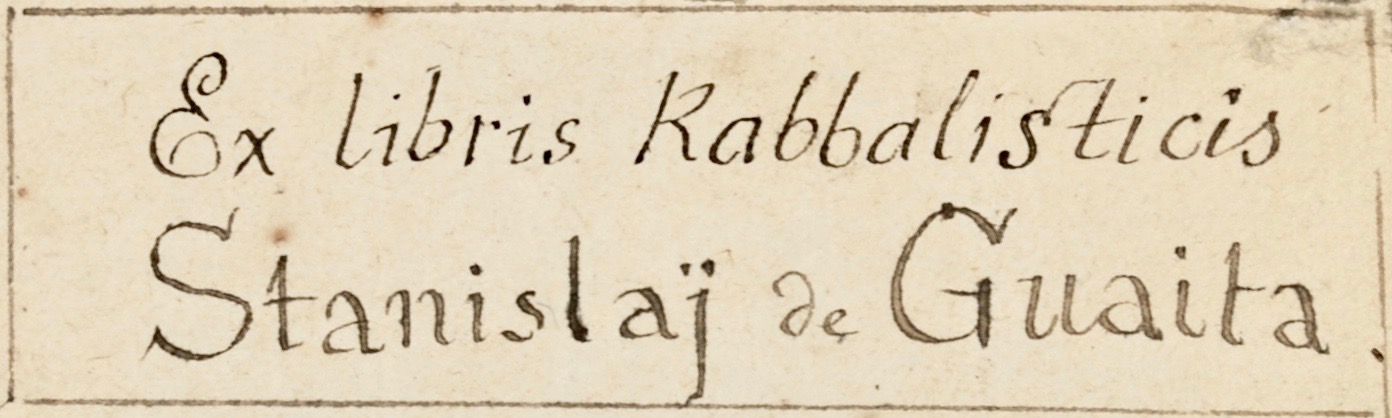 Ex libris Kabbalisticis
Stanislaÿ de Guaita.